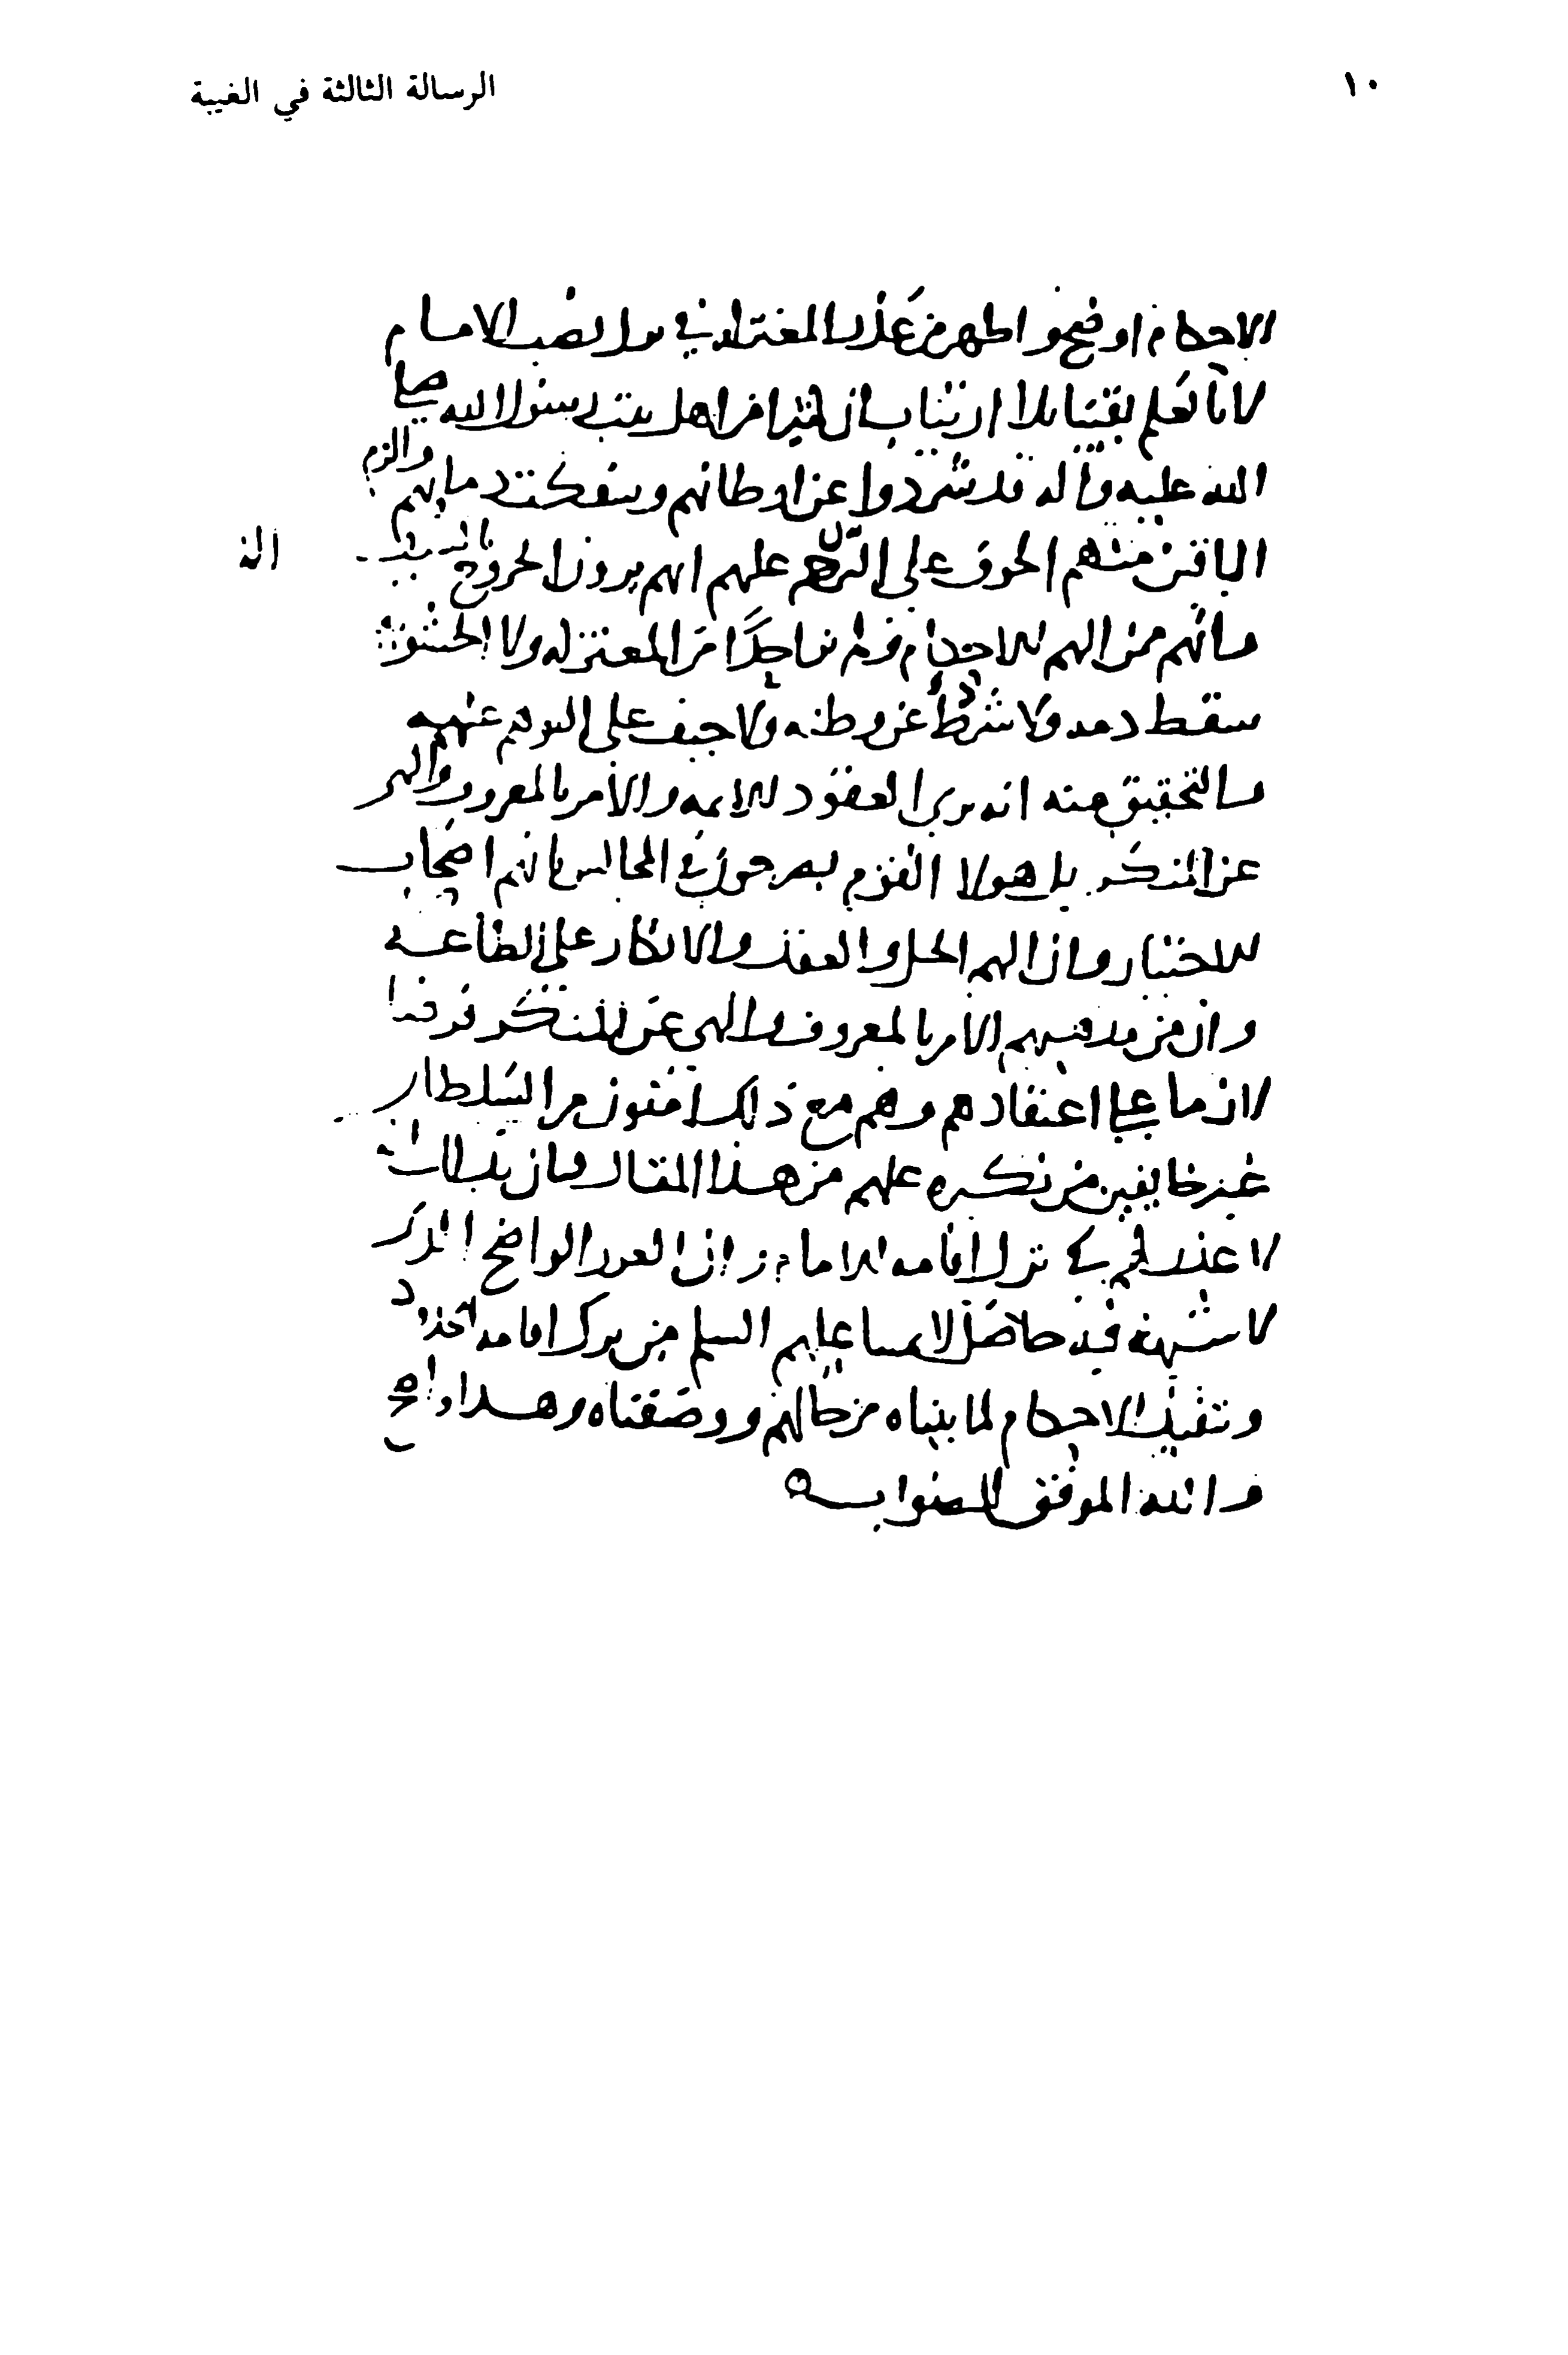 ١٠
الرسالة الثالثة في الغيبة
الاحكام اوضح واظهر من عذر المعتزله في ترك نصب الامام
لانا نعلم يقينا بلا ارتياب ان كثيرا من اهل بيت رسول الله صلى
الله عليه واله قد شردوا عن اوطانهم وسفكت دمايهم والزم
الباقين منهم الخوف على التوهم عليهم انهم يرون الخروج بالسيف
وانهم ممن اليهم الاحكام ولم نر احدا من المعتزله ولا الحشوية
سفك دمه ولا شرد عن وطنه ولا خيف على التوهم عليه
والتحقيق منه انه يرى العقود للايمه والامر بالمعروف والنهي
عن المنكر بل هولا القوم يصرحون في المجالس بانهم اصحاب
الاختيار وان اليهم الحل والعقد والانكار على الطاعة
وان من مذهبهم الامر بالمعروف والنهي عن المنكر فرضا
لازما على اعتقادهم وهم مع ذلك امنون من السلطان
غير خايفين من نكيره عليهم من هذا المقال فبان بذلك انه
لا عذر لهم في ترك اقامه الامام وان العذر الواضح الذي
لا شبهة فيه حاصل لايمتنا عليهم السلم من ترك اقامه الحدود
وتنفيذ الاحكام لما بيناه من حالهم ووصفناه وهذا واضح
والله الموفق للصواب